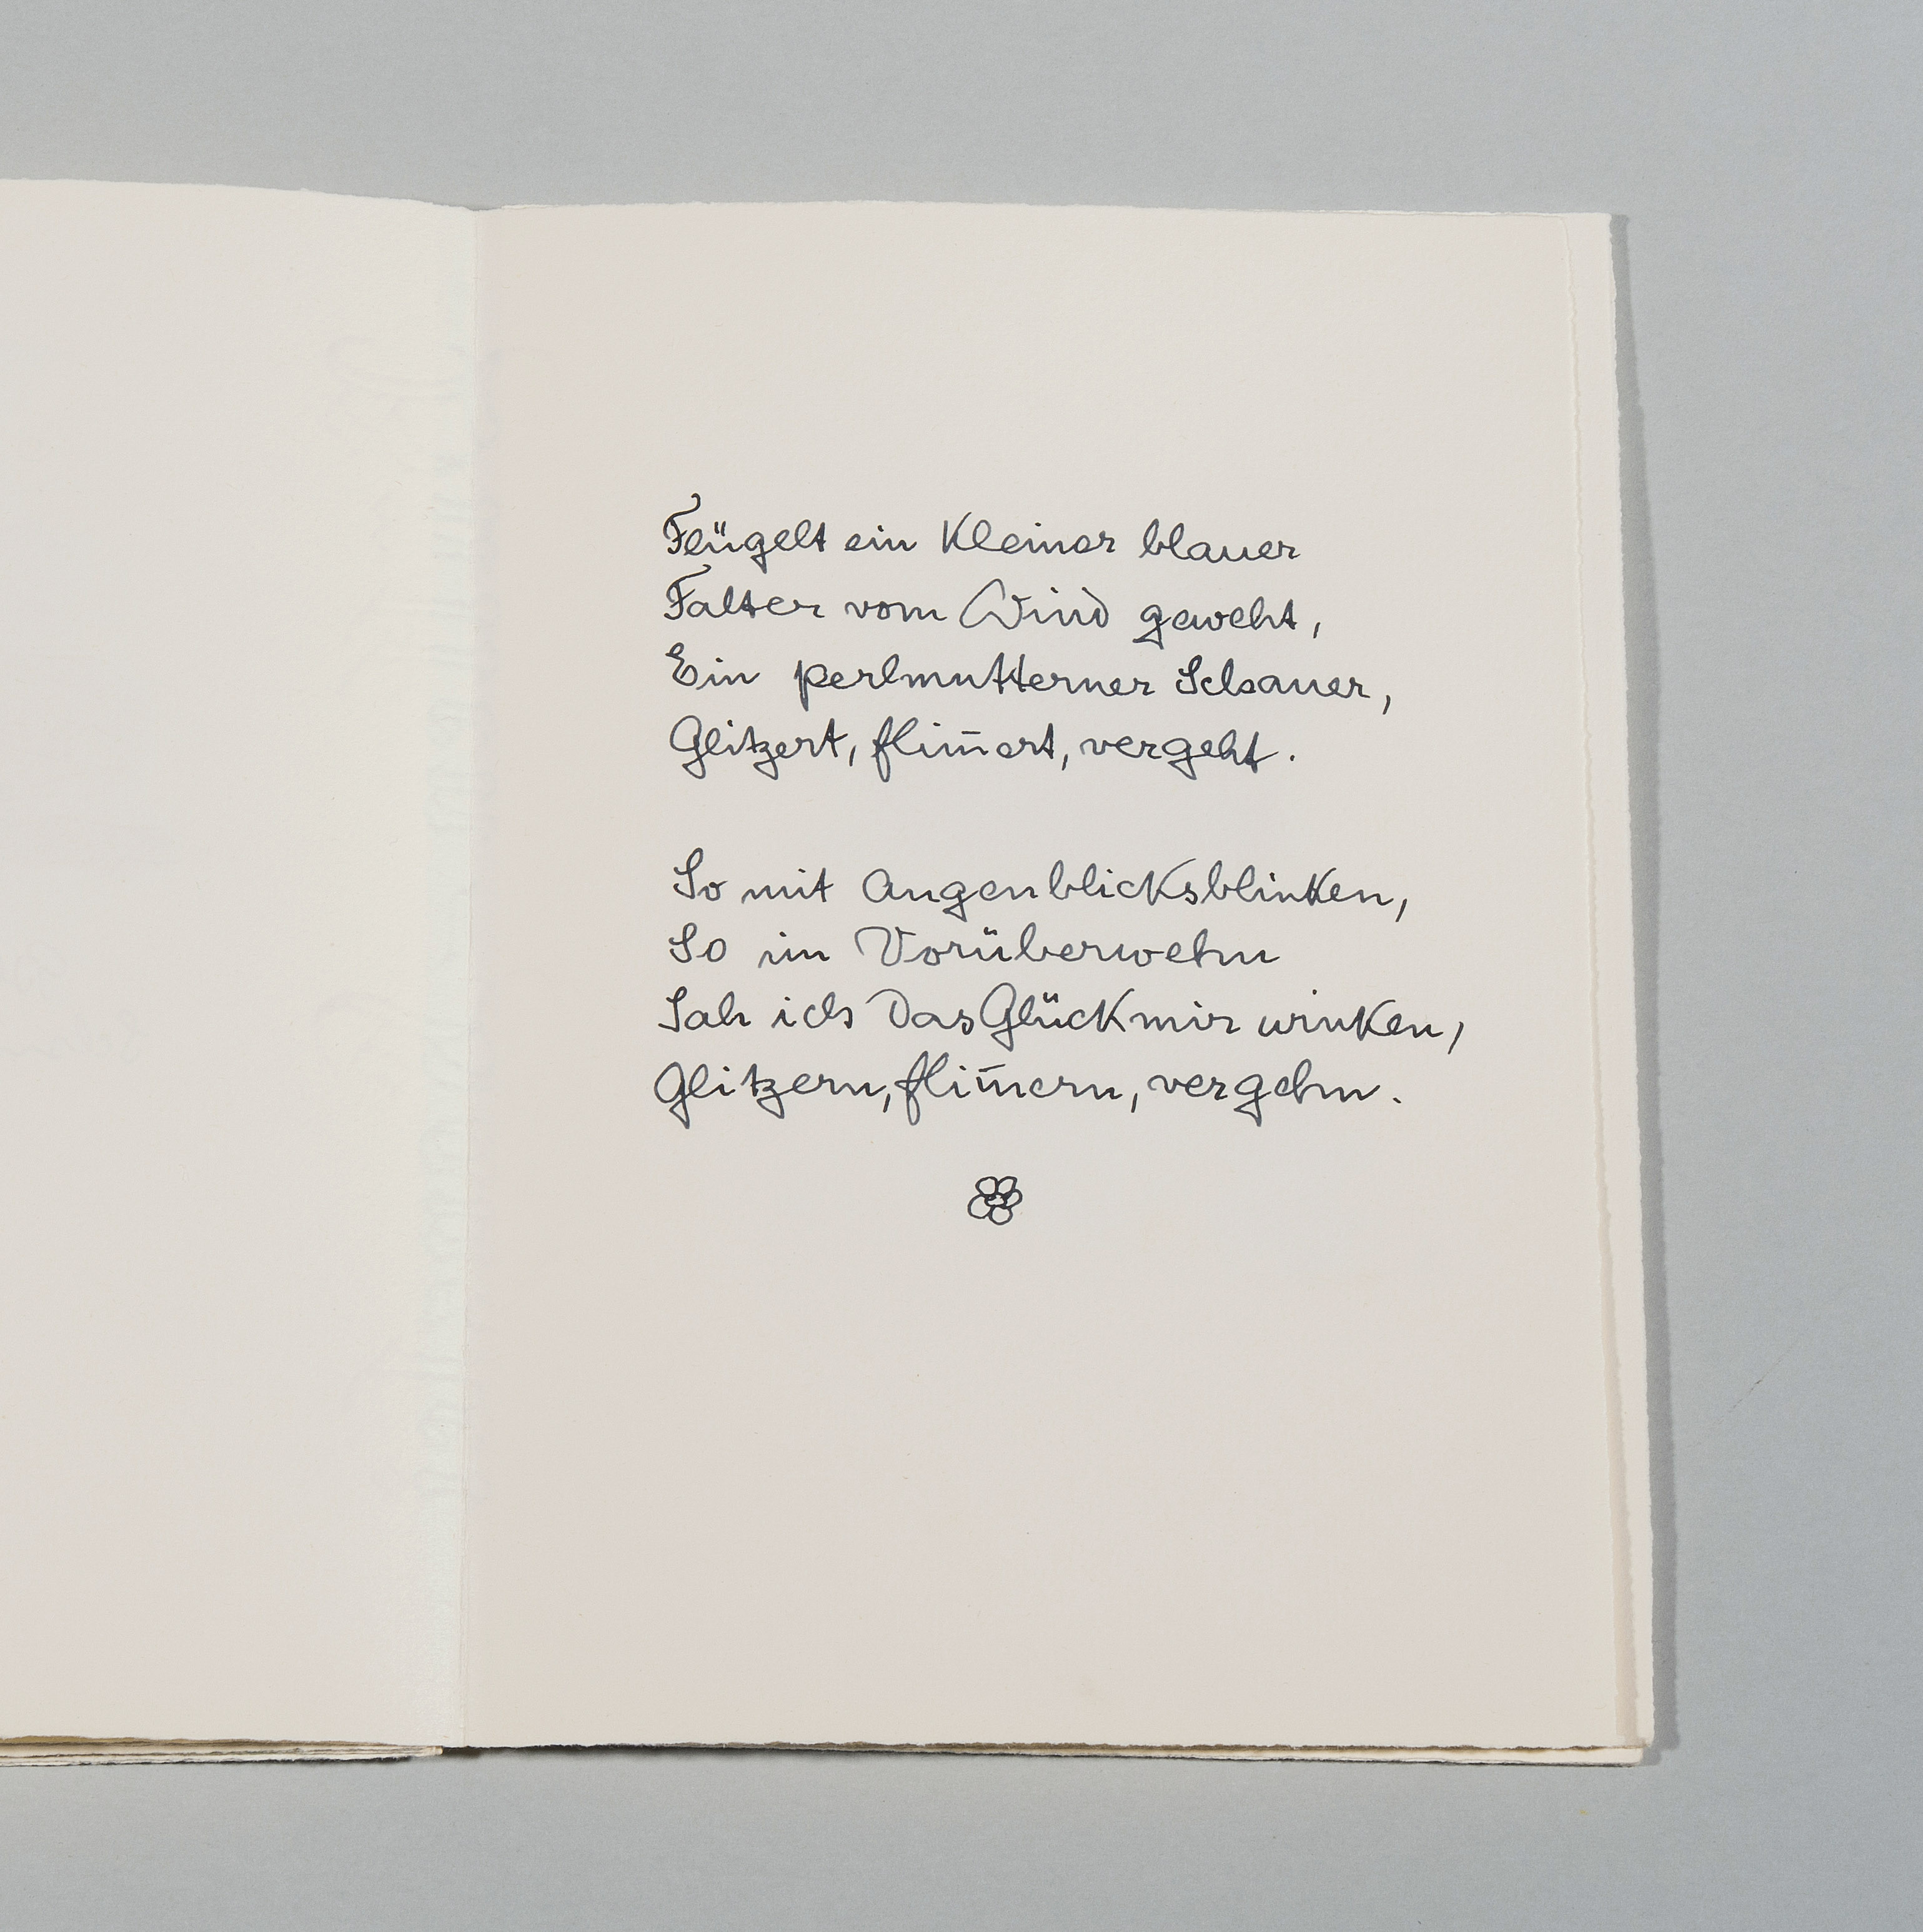 Flügelt ein kleiner blauer
Falter vom Wind geweht,
Ein perlmutterner Schauer,
Glitzert, flim̄ert, vergeht.
So mit Augenblicksblinken,
So im Vorüberwehn
Sah ich das Glück mir winken,
Glitzern, flim̄ern, vergehn.